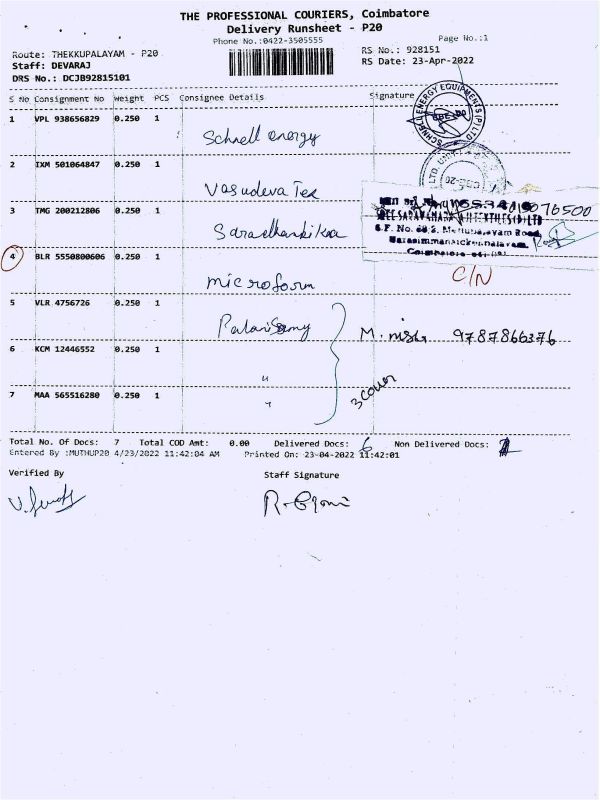 THE PROFESSIONAL COURIERS, Coimbatore
Delivery Runsheet - P20
Phone No.:0422-3505555
Page No.:1
Route: THEKKUPALAYAM - P20
RS No.: 928151
Staff: DEVARAJ
RS Date: 23-Apr-2022
DRS No.: DCJB92815101
S No Consignment No Weight PCS Consignee Details Signature
1 VPL 938656829 0.250 1
Schnell energy
SCHNELL ENERGY EQUIPMENTS (P) LTD
2 IXM 501064847 0.250 1
Vasudeva Tex
3 TMG 200212806 0.250 1
Saradhambika
4 BLR 5550800606 0.250 1
microform
C/N
5 VLR 4756726 0.250 1
Palanisamy
M. 9787866376
6 KCM 12446552 0.250 1
"
7 MAA 565516280 0.250 1
"
3 cover
Total No. Of Docs: 7 Total COD Amt: 0.00 Delivered Docs: 6 Non Delivered Docs: 1
Entered By :MUTHUP20 4/23/2022 11:42:04 AM Printed On: 23-04-2022 11:42:01
Verified By Staff Signature